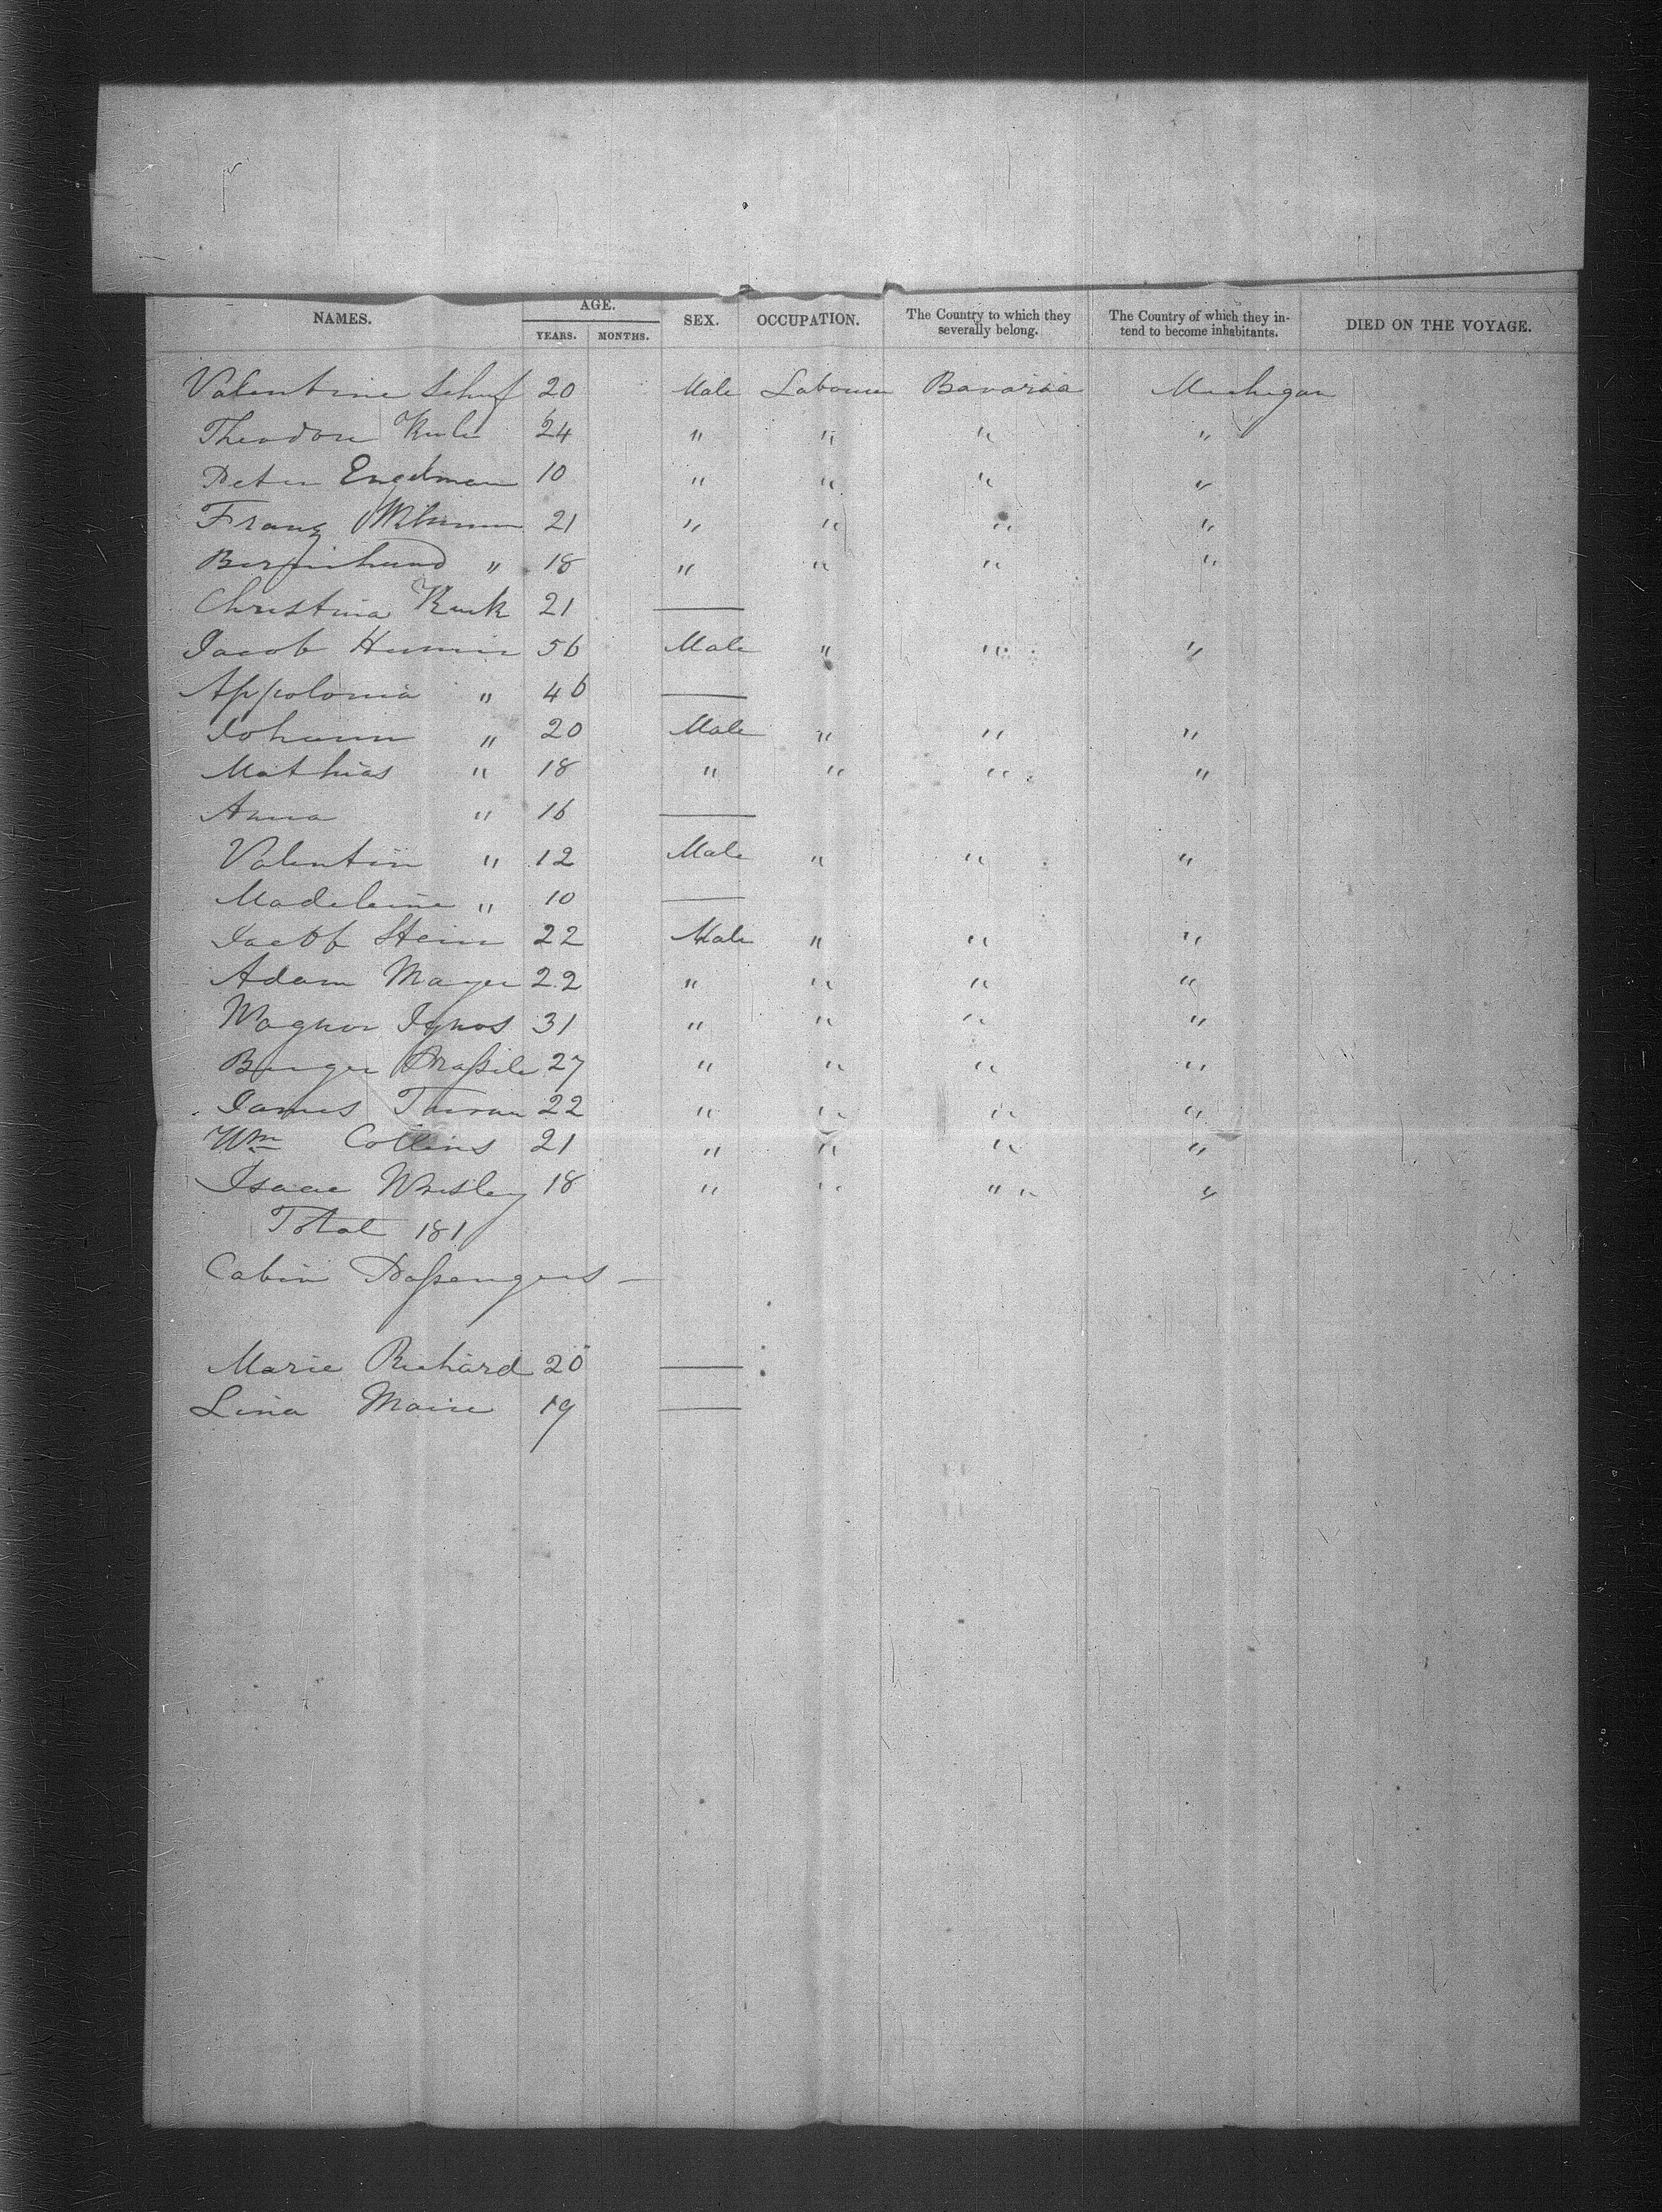 NAMES. AGE. YEARS. MONTHS. SEX. OCCUPATION. The Country to which they severally belong. The Country of which they intend to become inhabitants. DIED ON THE VOYAGE.
Valentine Schuf 20 Male Labourer Bavaria Michigan
Theodore 24 " " " "
Peter Engelman 10 " " " "
Franz 21 " " " "
" 18 " " " "
Christina Kuck 21 —
Jacob 56 Male " " "
Appolonia " 46 —
Johann " 20 Male " " "
Mathias " 18 " " " "
Anna " 16 —
Valentin " 12 Male " " "
Madeleine " 10 —
Jacob Stein 22 Male " " "
Adam Mayer 22 " " " "
Wagner Ignos 31 " " " "
27 " " " "
James 22 " " " "
Wm Collins 21 " " " "
Isaac Wresley 18 " " " "
Total 181
Cabin Passengers —
Marie Richard 20 —
Lina Maire 19 —